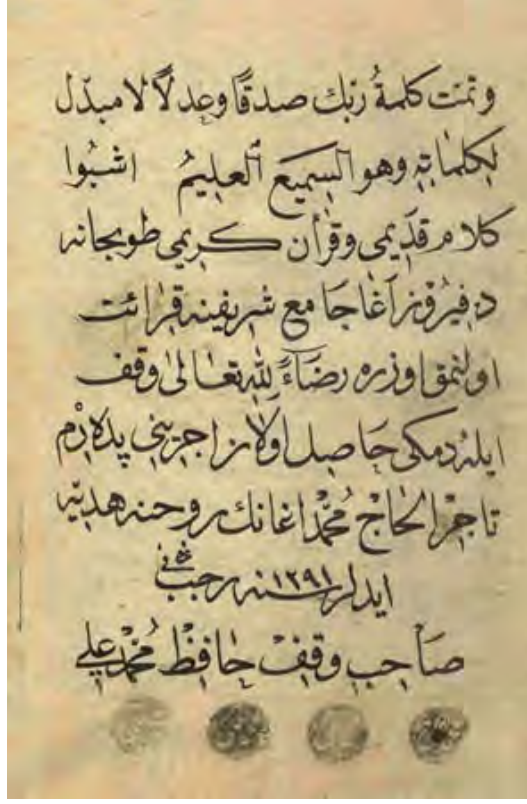 وتمت كلمةُ ربّك صدقًا وعدلًا لا مبدّل
لكلماته وهو السميع العليمُ اشبُوا
كلام قديمى وقرآن كريمى طوبخانه
ده فيروز آغا جامع شريفينه قرائت
اولنمق اوزره رضاءً لله تعالى وقف
ايلردمكى حاصل اولان اجرينى پدرم
تاجر الحاج محمد اغانك روحنه هديه
ايدلر سنه ١٢٩١ رجب
صاحب وقف حافظ محمد على